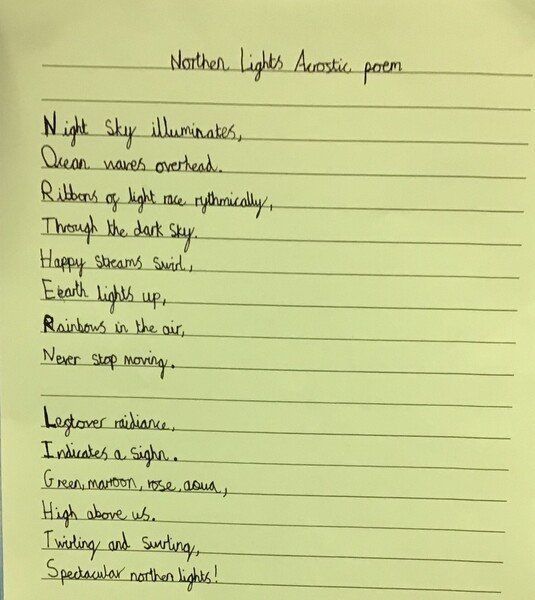 Northen Lights Acrostic poem
Night Sky illuminates,
Ocean waves overhead.
Ribbons of light race rythmically,
Through the dark sky.
Happy streams swirl,
Eearth lights up,
Rainbows in the air,
Never stop moving.
Leftover raidiance,
Indicates a sighn.
Green, maroon, rose, aqua,
High above us.
Twirling and swirling,
Spectacular northen lights!